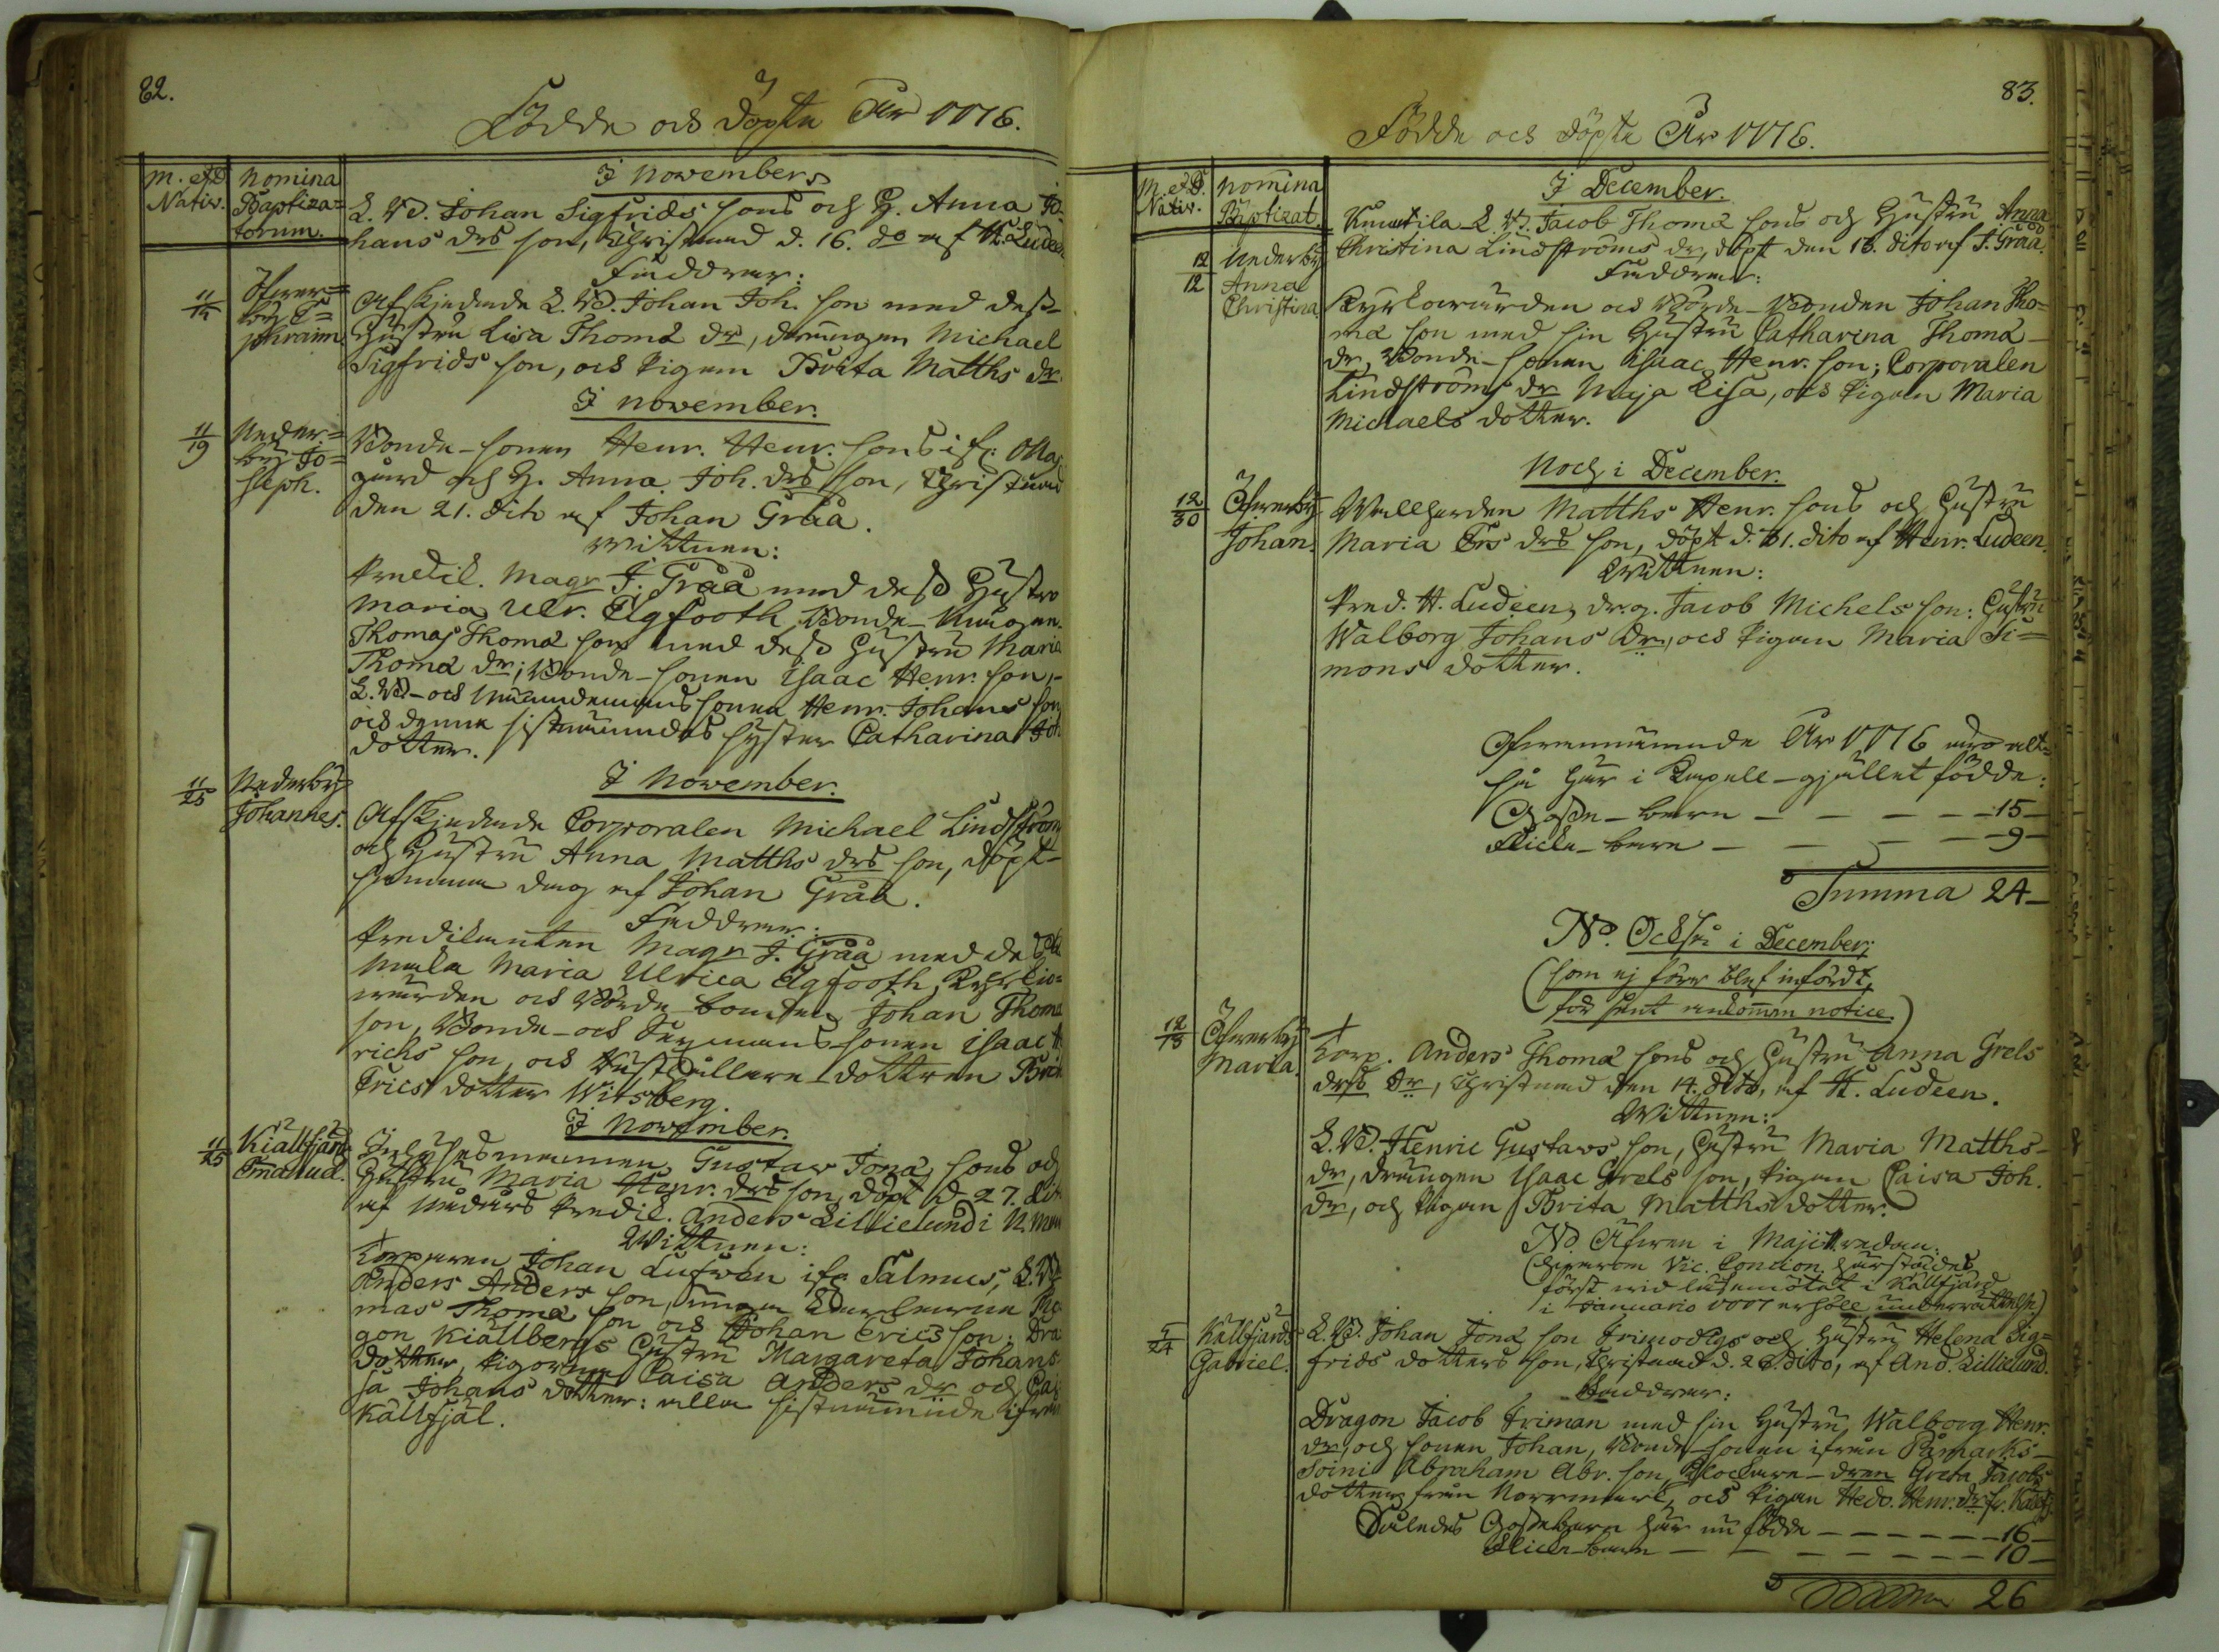 82.
Födde och döpte År 1776.
M. et D. Nativ.
Nomina Baptizatorum.
I November.
L. Bd. Johan Sigfrids sons och H. Anna Jo-
hans drs son, Christnad d. 16. do af H. Ludeen
Faddrar:
11/14
Öfwer=
by E=
phraim.
Afskjedade L. Bd. Johan Joh. son med dess
Hustru Lisa Thomæ dr, drängen Michael
Sigfrids son, och Pigan Brita Matths dr.
I November.
11/19
Neder=
by Jo=
seph.
Bonde-sonen Henr. Henr. sons ifr:
gård och H. Anna Joh. drs son, Christnad
den 21. dito af Johan Gråå.
Wittnen:
Predik. Magr J. Gråå med dess Hustru
Maria Ulr. Elgfooth, Bonde-Mågen
Thomas Thomæ son med dess Hustru Maria
Thomæ dr; Bonde-sonen Isaac Henr. son,
L. Bd- och Nämndemans sonen Henr. Johans son
och denne sistnämndes syster Catharina Joh.
dotter.
11/25
Nederby
Johannes.
I November.
Afskjedade Corporalen Michael Lindström
och Hustru Anna Matths drs son, döpt
samma dag af Johan Gråå.
Faddrar:
Predikanten Magr J. Gråå med dess
Maka Maria Ulrica Elgfooth, Kyrkio-
wärden och Bonden Johan Thomæ
son, Bonde- och sonen Isaac H
richs son, och dottren Brita
Erics dotter Witsberg.
I November.
11/25
Kiällfjärd
Emanuel.
Inhysesmannen Gustaw Jonæ sons och
Hustru Maria Henr. drs son, döpt d. 27. dito
af Predik. Anders Lillielund i
Wittnen:
Johan Lufwen ifr. Salmus, L. Bd
Anders Anders son,
mas Thomæ son och Johan Erics son; Dra
gon Kiällbergs Hustru Margareta Johans
dotter, Pigorna Caisa Anders dr och Cai
sa Johans dotter: alla sistnämnde ifrån
Källfjäl.
83.
Födde och döpte År 1776.
M. et D. Nativ.
Nomina Baptizat.
I December.
L. Bd. Jacob Thomæ sons och Hustru Anna
Christina Lindströms dr, döpt den 13. dito af J. Gråå.
Faddrar:
12/12
Nederby
Anna
Christina
Kyrkowärden och Bonden Johan Tho=
mæ son med sin Hustru Catharina Thomæ
dr, Bonde-sonen Isaac Henr. son; Corporalen
Lindströms dr Maja Lisa, och Pigan Maria
Michaels dotter.
Noch i December.
12/30
Öfwerby
Johan.
Wallherden Matths Henr. sons och Hustru
Maria Ers drs son, döpt d. 31. dito af Henr. Ludeen.
Wittnen:
Pred. H. Ludeen, drg. Jacob Michels son: Hustru
Walborg Johans dr, och Pigan Maria Si=
mons dotter.
Ofwannämnde År 1776 äro alt=
så här i Capell-gjället födde:
Gosse-barn — — — — 15—
Flicke-barn — — — — 9—
Summa 24—
NB. Också i December;
(som ej förr blef infördt,
för sent ankommen notice.)
12/13
Öfwerby
Maria.
Korp. Anders Thomæ sons och Hustru Anna Grels
drs dr, Christnad den 14. dito, af H. Ludeen.
Wittnen:
L. Bd. Henric Gustaws son, Hustru Maria Matths-
dr, drängen Isaac Grels son, Pigan Caisa Joh.
dr, och Pigan Brita Matths dotter.
NB Äfwen i Maji redan.
(hwarom Vic. Concion. härstädes
först wid läsemötet i Källfjärd
i Januario 1777 erhöll underrättelse.)
5/24
Källfjärd
Gabriel.
L. Bd. Johan Jonæ son Frimodigs och Hustru Helena Sig=
frids dotters son, Christnad d. 26 dito, af And. Lillielund.
Faddrar:
Dragon Jacob Friman med sin Hustru Walborg Henr.
dr, och sonen Johan, Bonde-sonen ifrån Påmarks-
Soini Abraham Abr. son, Klockare-dren Greta Jacobs
dotter från Norrmark, och Pigan Hedv. Henr. dr fr. Källfj.
Således Gossebarn här nu födde — — — — 16—
Flicke-barn — — — — 10—
Summa 26